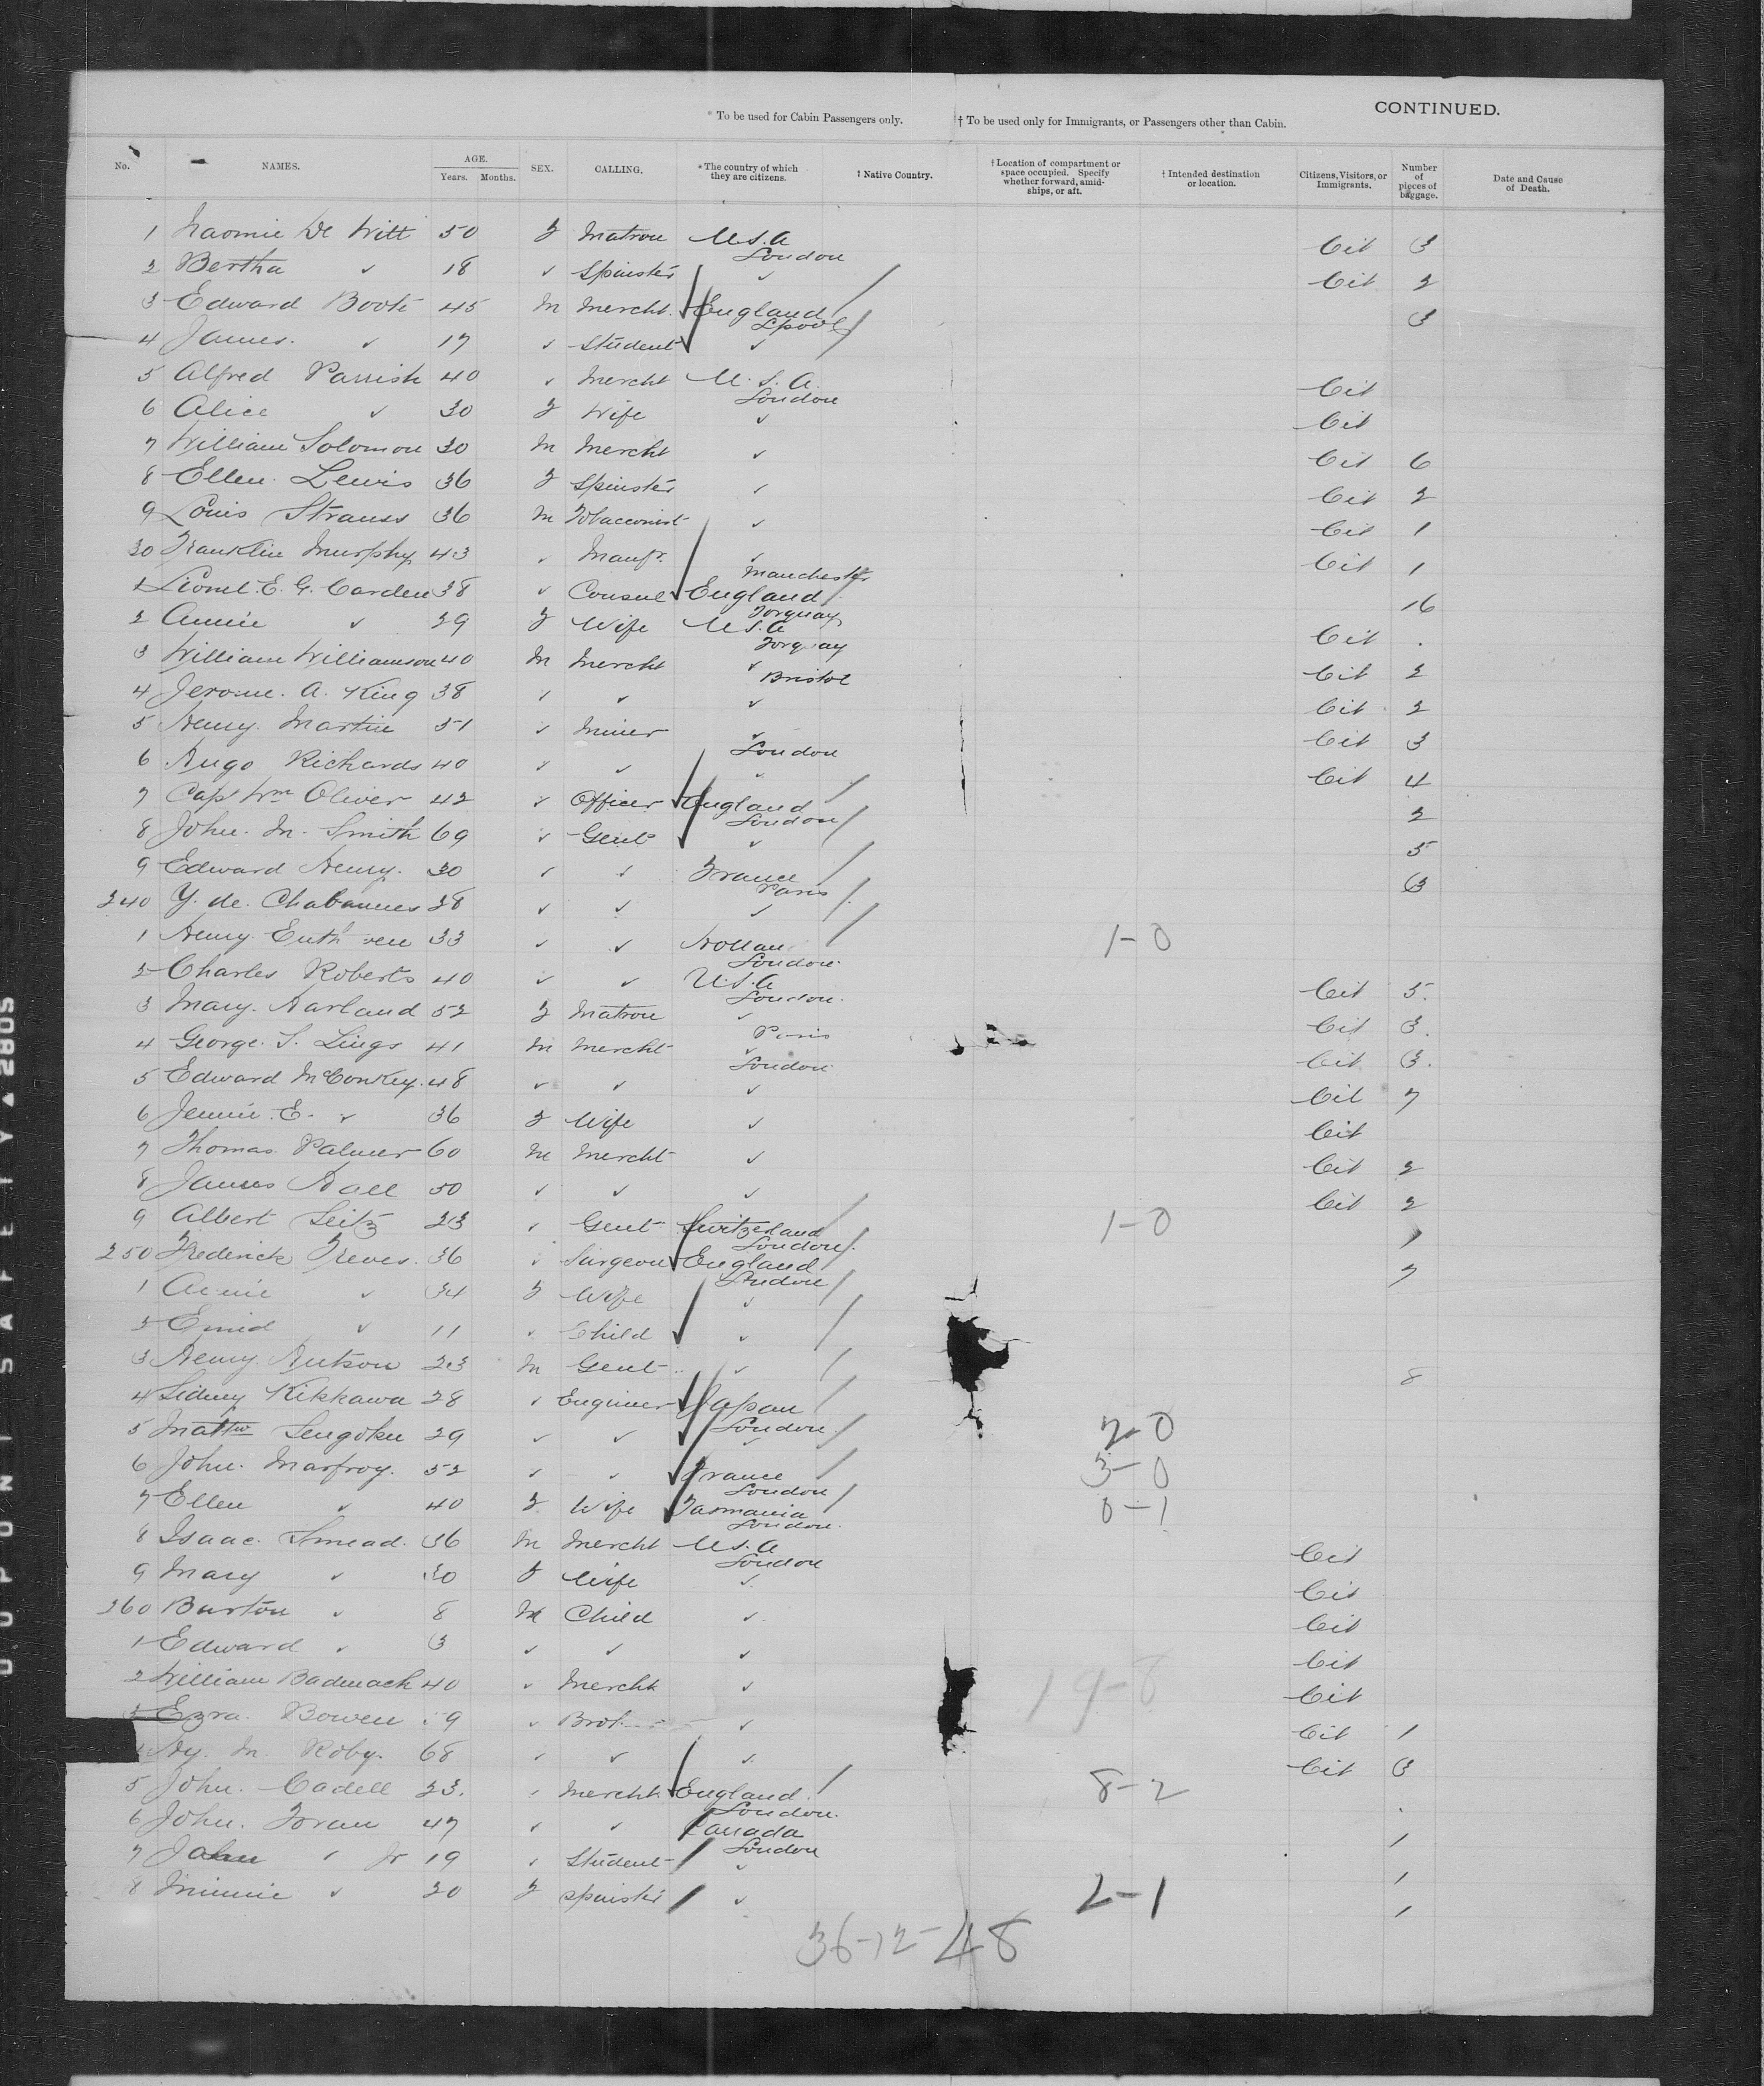 CONTINUED.
* To be used for Cabin Passengers only. † To be used only for Immigrants, or Passengers other than Cabin.
No. NAMES. AGE. Years. Months. SEX. CALLING. * The country of which they are citizens. † Native Country. † Location of compartment or space occupied. Specify whether forward, amidships, or aft. † Intended destination or location. Citizens, Visitors, or Immigrants. Number of pieces of baggage. Date and Cause of Death.
1 Naomie De Witt 50 F Matron U.S.A London Cit 3
2 Bertha ✓ 18 ✓ Spinster ✓ Cit 2
3 Edward Boote 45 M Mercht. England Lpool 3
4 James. ✓ 17 ✓ Student ✓
5 Alfred Parrish 40 ✓ Mercht U.S.A. London Cit
6 Alice ✓ 30 F Wife ✓ Cit
7 William Solomon 30 M Mercht ✓ Cit 6
8 Ellen Lewis 36 F Spinster ✓ Cit 2
9 Louis Strauss 36 M Tobacconist ✓ Cit 1
30 Franklin Murphy 43 ✓ Manfr. ✓ Manchester Cit 1
1 Lionel E. G. Carden 38 ✓ Consul England Torquay 16
2 Annie ✓ 29 F Wife U.S.A Torquay Cit .
3 William Williamson 40 M Mercht ✓ Bristol Cit 2
4 Jerome. A. King 38 ✓ ✓ ✓ Cit 2
5 Henry. Martin 51 ✓ Miner ✓ London Cit 3
6 Hugo Richards 40 ✓ ✓ ✓ Cit 4
7 Capt Wm Oliver 42 ✓ Officer England London 2
8 John. M. Smith 69 ✓ Gent ✓ 5
9 Edward Henry. 30 ✓ ✓ France Paris 3
240 Y. de. Chabannes 28 ✓ ✓ ✓
1 Henry 33 ✓ ✓ London 1-0
2 Charles Roberts 40 ✓ ✓ U.S.A London. Cit 5.
3 Mary. Harland 52 F Matron ✓ Paris Cit 3.
4 George. S. Lings 41 M Mercht ✓ London Cit 3.
5 Edward McConkey. 48 ✓ ✓ ✓ Cit 7
6 Jennie. E. ✓ 36 F Wife ✓ Cit
7 Thomas Palmer 60 M Mercht ✓ Cit 2
8 James Hall 50 ✓ ✓ ✓ Cit 2
9 Albert Seitz 23 ✓ Gent Switzerland London. 1-0 1
250 Frederick Treves. 36 ✓ Surgeon England London 7
1 Annie ✓ 34 F Wife ✓
2 Enid ✓ 11 ✓ Child ✓
3 Henry. Hutson 23 M Gent ✓ 8
4 Sidney Kikkawa 28 ✓ Engineer Japan London.
5 Mattw Sengoku 29 ✓ ✓ ✓ 2-0
6 John. Marfroy. 52 ✓ ✓ France London 3-0
7 Ellen ✓ 40 F Wife Tasmania London. 0-1
8 Isaac. Smead. 36 M Mercht U.S.A London Cit
9 Mary ✓ 30 F Wife ✓ Cit
260 Burton ✓ 8 M Child ✓ Cit
1 Edward ✓ 3 ✓ ✓ ✓ Cit
2 William Badmach 40 ✓ Mercht ✓ 19-8 Cit
3 Ezra. Bowen 9 ✓ ✓ Cit 1
Hy. M. Roby. 68 ✓ ✓ ✓ Cit 3
5 John. Cadell 23. ✓ Mercht. England. London. 8-2
6 John. Foran 47 ✓ ✓ Canada London 1
7 John ✓ Jr 19 ✓ Student ✓ 1
8 Minnie ✓ 20 F Spinster ✓ 2-1 1
36-12-48
DUPONT SAFETY ▲ 2805